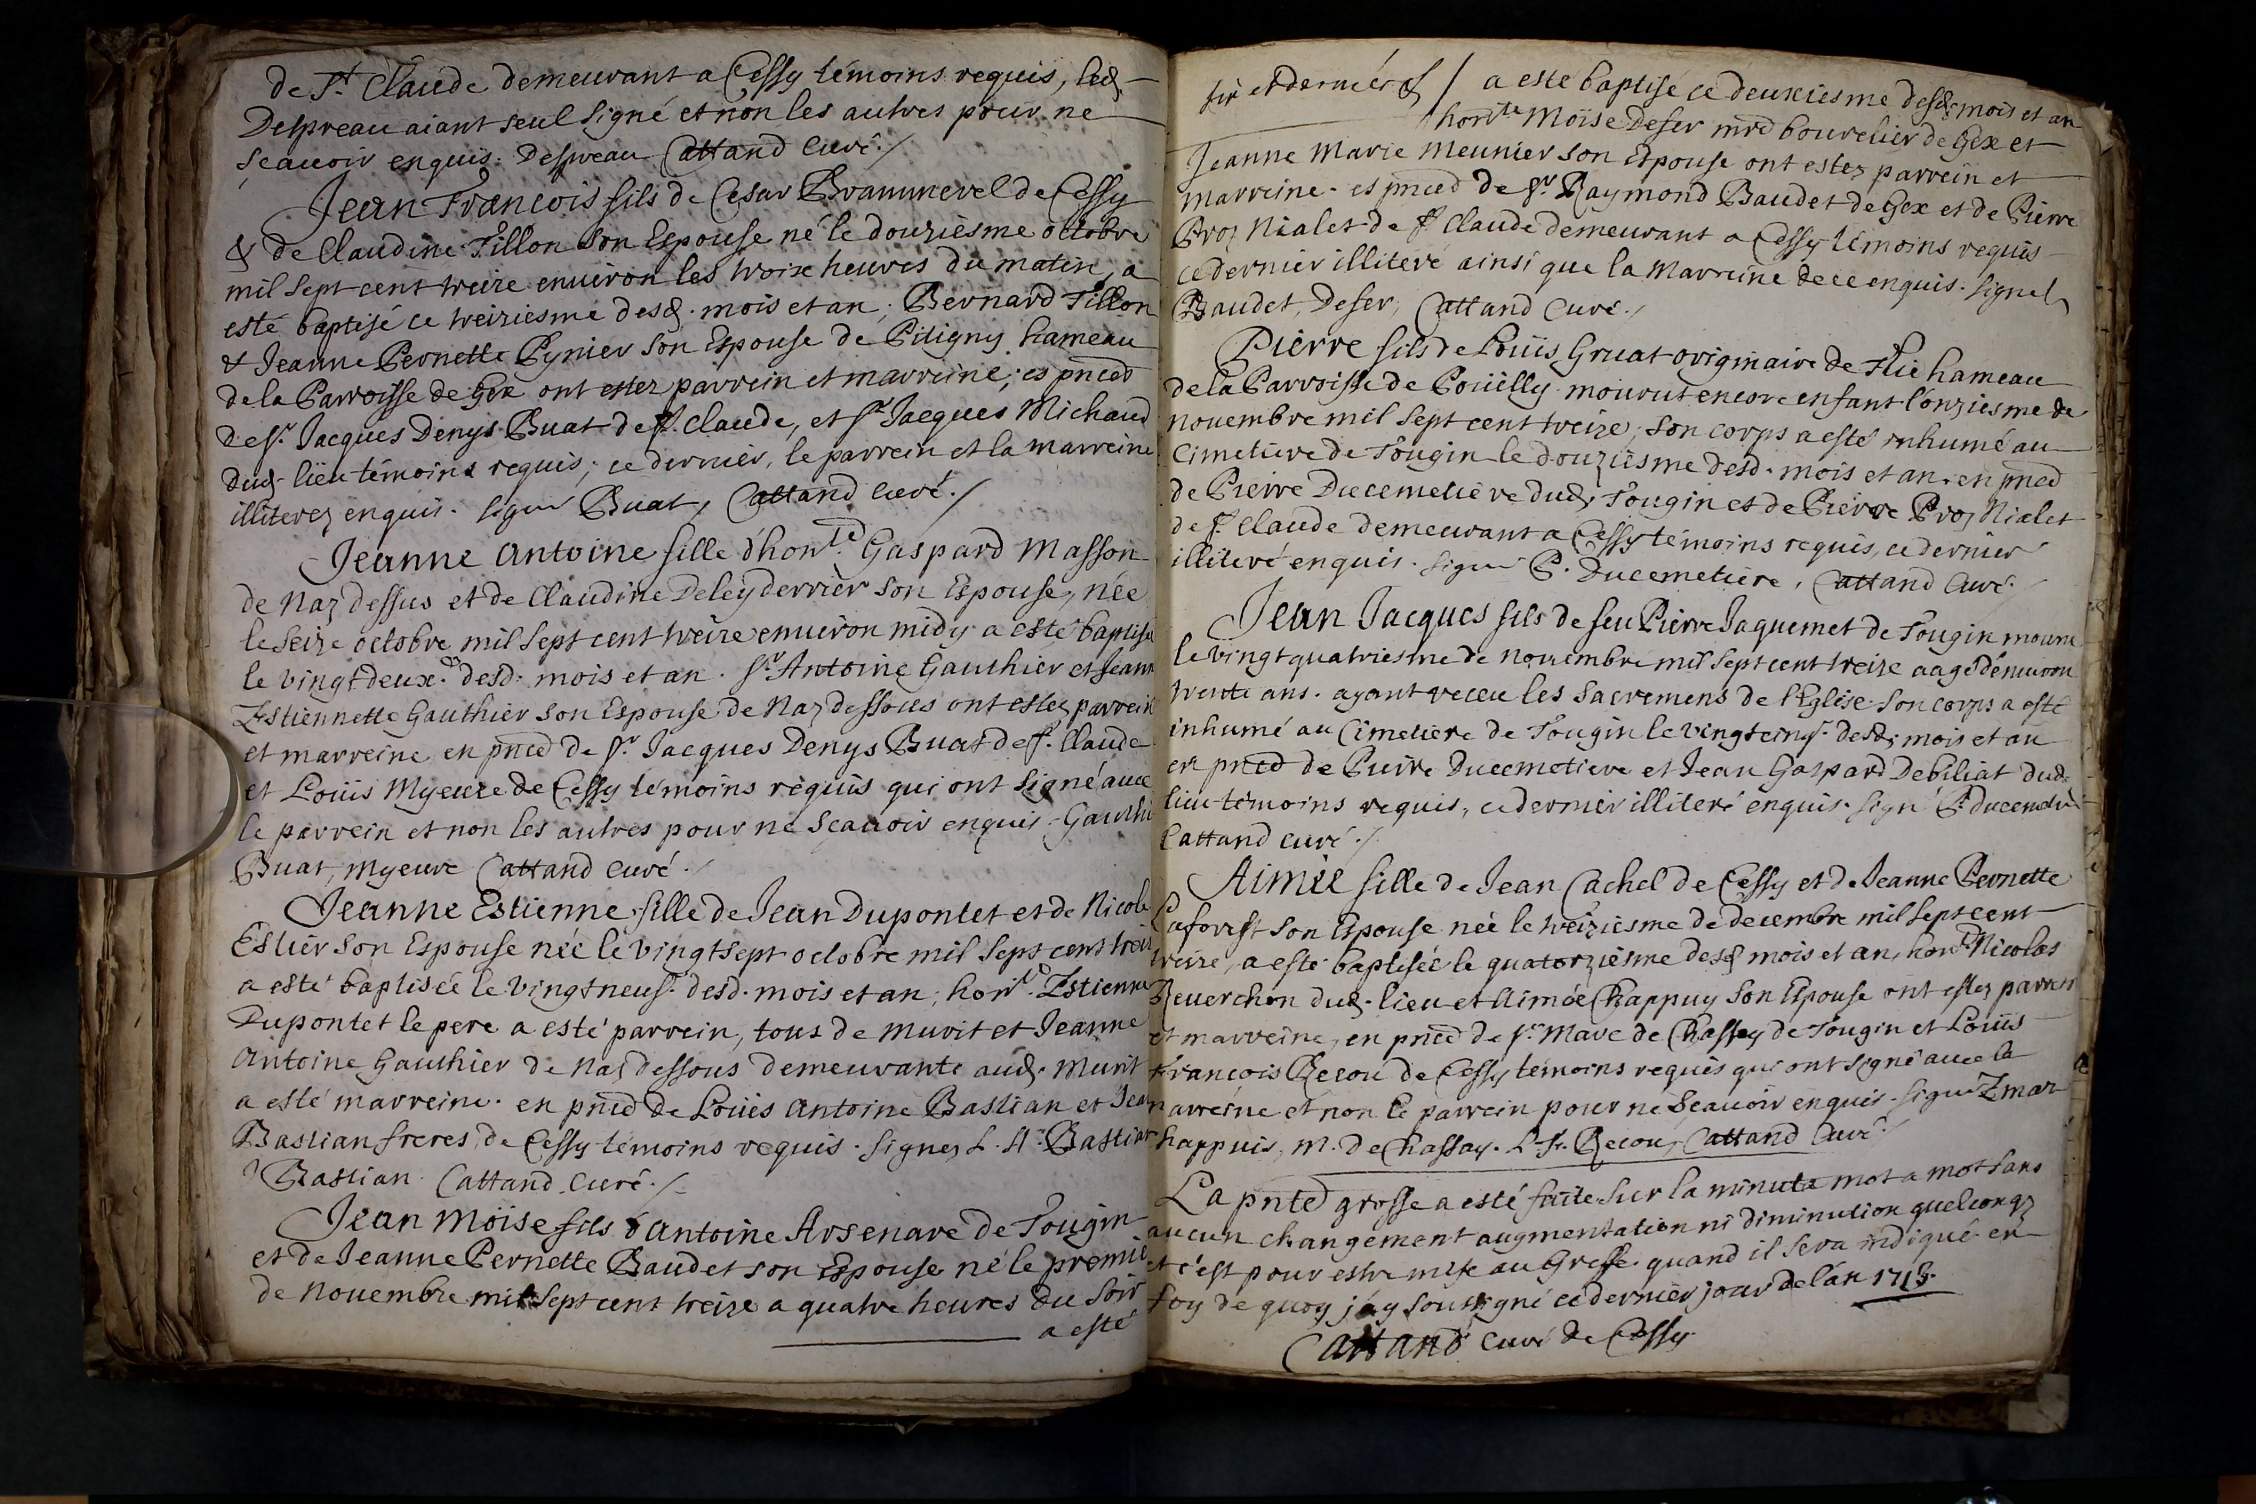 de St. Claude demeurant a Cessy témoins requis, led.
Despreau aiant seul signé et non les autres pour ne
scauoir enquis. Despreau Cattand Curé./
Jean Francois fils de Cesar Brammerel de Cessy
& de Claudine Tillon son Espouse né le douziesme octobre
mil sept cent treize enuiron les troix heures du matin, a
esté baptisé ce treiziesme desd. mois et an; Bernard Tillon
& Jeanne Pernette Pynier son Espouse de Pitigny hameau
de la Parroisse de Gex ont estez parrein et marreine; es pnced
de sr. Jacques Denys Buat de st. Claude, et sr Jacques Michaud
dud. lieu témoins requis; ce dernier, le parrein et la marreine
illiterez enquis. signé Buat, Cattand curé./
Jeanne Antoine fille d'honte. Gaspard Masson
de Naz dessus et de Claudine Deleyderrier son Espouse, née
le seize octobre mil sept cent treize enuiron midy a esté baptisé
le vingt deux. desd. mois et an. sr. Antoine Gauthier et Jeann
Estiennette Gauthier son Espouse de Naz dessous ont estez parrein
et marreine en pnced de sr. Jacques Denys Buat de st. Claude
et Loüis Myeure de Cessy témoins requis qui ont signé auec
le parrein et non les autres pour ne scauoir enquis. Gauthi
Buat, Myeure Cattand curé./
Jeanne Estienne fille de Jean Dupontet et de Nicole
Estier son Espouse née le vingt sept octobre mil sept cent treiz
a esté baptisée le vingt neuf. desd. mois et an; honte. Estienne
Dupontet le pere a esté parrein, tous de Murit et Jeanne
Antoine Gauthier de Naz dessous demeurante aud. Murit
a esté marreine. en pnced de Loüis Antoine Bastian et Jean
Bastian freres de Cessy témoins requis. signez L. A. Bastian
Bastian. Cattand curé./
Jean Moïse fils d'Antoine Arsenare de Tougin
et de Jeanne Pernette Baudet son Espouse né le premie
de Nouembre mil sept cent treize a quatre heures du soir
a esté
six et dernier f / a esté baptisé ce deuxiesme desd. mois et an
honte Moïse Defer mrd bourelier de Gex et
Jeanne Marie Meunier son Espouse ont estez parrein et
marreine. es pnced de sr. Raymond Baudet de Gex et de Pierre
Proz Nialet de st Claude demeurant a Cessy témoins requis
ce dernier illiteré ainsi que la Marreine de ce enquis. signel
Baudet, Defer, Cattand Curé./
Pierre fils de Loüis Gruat originaire de Flie hameau
de la Parroisse de Poüilly mourut encore enfant l'onziesme de
nouembre mil sept cent treize; son corps a esté inhumé au
Cimetiere de Tougin le douziesme desd. mois et an. en pnced
de Pierre Ducemetiere dud. Tougin et de Pierre Proz Nialet
de st. Claude demeurant a Cessy témoins requis, ce dernier
illiteré enquis. signé P. Ducemetiere, Cattand Curé./
Jean Jacques fils de feu Pierre Jaquemet de Tougin mouru
le vingt quatriesme de nouembre mil sept cent treize aagé d'enuiron
trente ans. ayant receu les sacremens de l'Eglise. son corps a esté
inhumé au Cimetiere de Tougin le vingt cinq. desd. mois et an
en pnced de Pierre Ducemetiere et Jean Gaspard Debiliat dud.
lieu témoins requis, ce dernier illiteré enquis. signé P. Ducemetie
Cattand curé./
Aimée fille de Jean Cachel de Cessy et de Jeanne Pernette
Laforest son Espouse née le treiziesme de decembre mil sept cent
treize, a esté baptisée le quatorziesme desd mois et an, honte Nicolas
Reuerchon dud. lieu et Aimée Chappuy son Espouse ont estez parrein
et marreine, en pnced de sr. Marc de Chassey de Tougin et Loüis
Francois Recou de Cessy témoins requis qui ont signé auec la
marreine et non le parrein pour ne scauoir enquis. signé Emar
Chappuis, M. de Chassay. L. Fr. Recou, Cattand Curé./
La pnted grosse a esté faite sur la minute mot a mot sans
aucun changement augmentation ni diminution quelconqz
et c'est pour estre mise au Greffe quand il sera indiqué. en
foy de quoy j'ay soussigné ce dernier jour de l'an 1713.
Cattand curé de Cessy